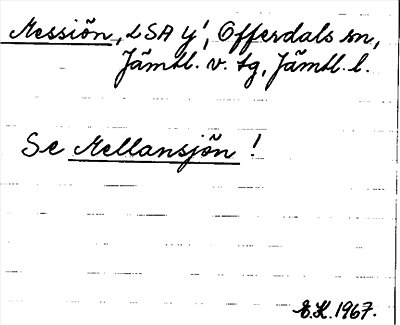 Messiön, LSA y!, Offerdals sn,
Jämtl. v. tg, Jämtl. l.
Se Mellansjön!
E.K. 1967.